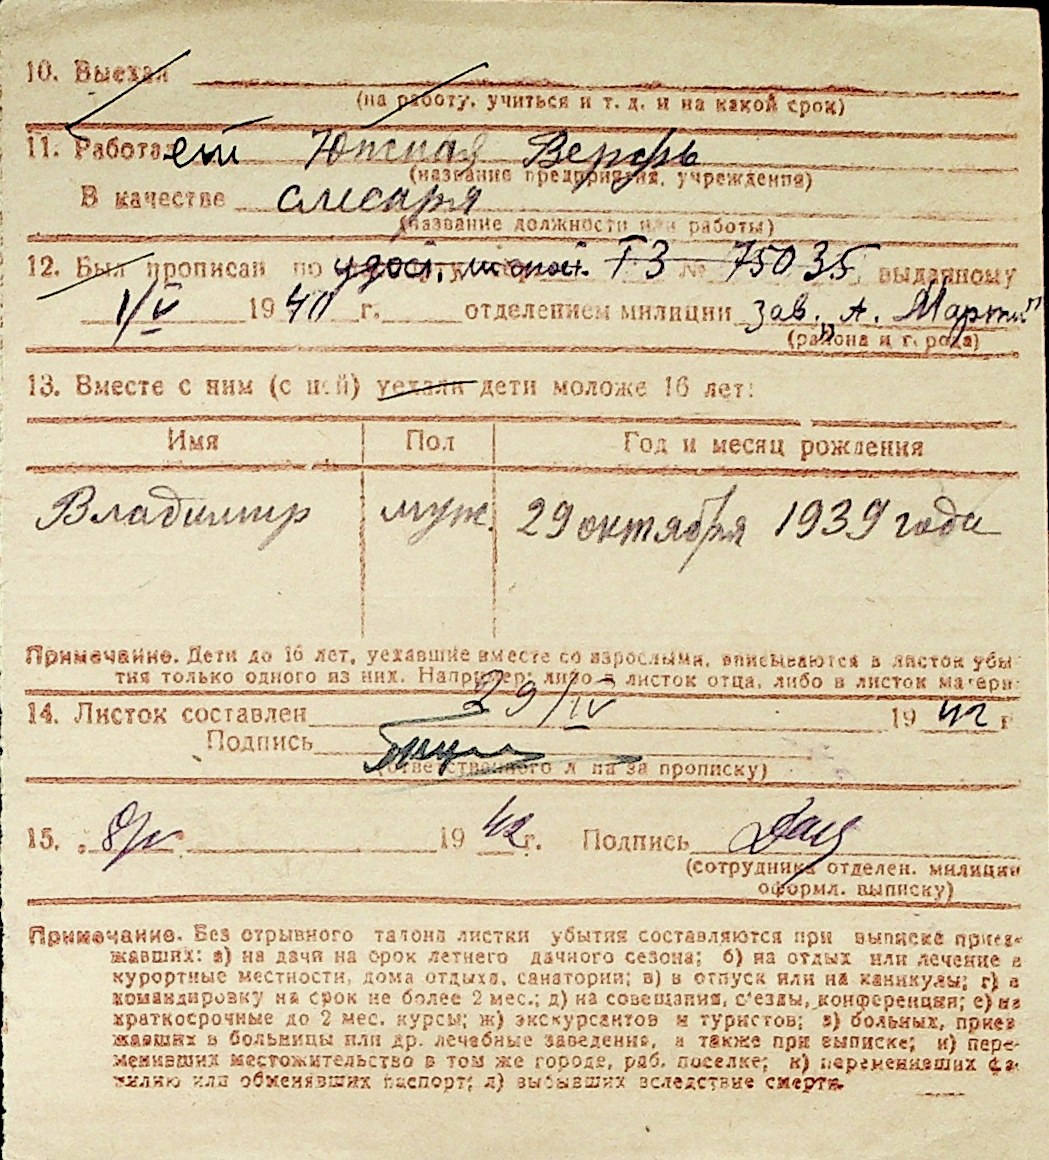 10. Выехал
(на работу, учиться и т. д. и на какой срок)
11. Работает Южная Верфь
(название предприятия, учреждения)
В качестве слесаря
(название должности или работы)
12. Был прописан по удост. личност. ТЗ № 75035 выданному
1/V 1940 г. отделением милиции зав. „А. Марти"
(района и города)
13. Вместе с ним (с ней) уехали дети моложе 16 лет:
Имя Пол Год и месяц рождения
Владимир муж. 29 октября 1939 года
Примечание. Дети до 16 лет, уехавшие вместе со взрослыми, вписываются в листок убы-
тия только одного из них. Например: либо в листок отца, либо в листок матери.
14. Листок составлен 29/IV 1942 г
Подпись
(ответственного л на за прописку)
15. 8/V 1942 г. Подпись
(сотрудника отделен. милиции
оформл. выписку)
Примечание. Без отрывного талона листки убытия составляются при выписке приез-
жавших: а) на дачи на срок летнего дачного сезона; б) на отдых или лечение в
курортные местности, дома отдыха, санатории; в) в отпуск или на каникулы; г) в
командировку на срок не более 2 мес.; д) на совещания, с'езды, конференции; е) на
краткосрочные до 2 мес. курсы; ж) экскурсантов и туристов; з) больных, приез-
жавших в больницы или др. лечебные заведения, а также при выписке; и) пере-
менивших местожительство в том же городе, раб. поселке; к) переменивших фа-
милию или обменявших паспорт; л) выбывших вследствие смерти.